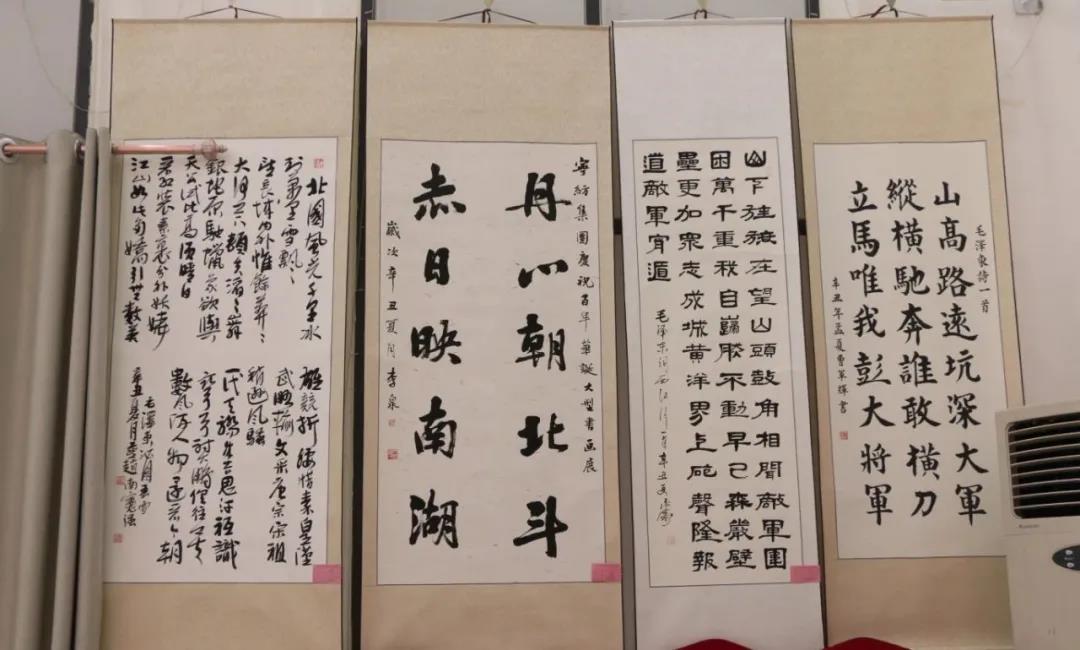 北國風光千里冰
封萬里雪飄
望長城內外惟餘莽〻
大河上下頓失滔〻山舞
銀蛇原馳蠟象欲與
天公試比高須晴日
看紅裝素裹分外妖嬈
江山如此多嬌引無數英
雄競折腰惜秦皇漢
武略輸文采唐宗宋祖
稍遜風騷
一代天驕成吉思汗祗識
彎弓射大鵰俱往矣
數風流人物還看今朝
毛澤東沁園春雪
辛丑夏月
寧紡集團慶祝百年華誕大型書畫展
丹心朝北斗
赤日映南湖
歲次辛丑夏月李泉
山下旌旗在望山頭鼓角相聞敵軍圍
困萬千重我自巋然不動早已森嚴壁
壘更加眾志成城黃洋界上砲聲隆報
道敵軍宵遁
毛澤東詞西江月一首辛丑夏
毛澤東詩一首
山高路遠坑深大軍
縱橫馳奔誰敢橫刀
立馬唯我彭大將軍
辛丑年孟夏曹軍輝書